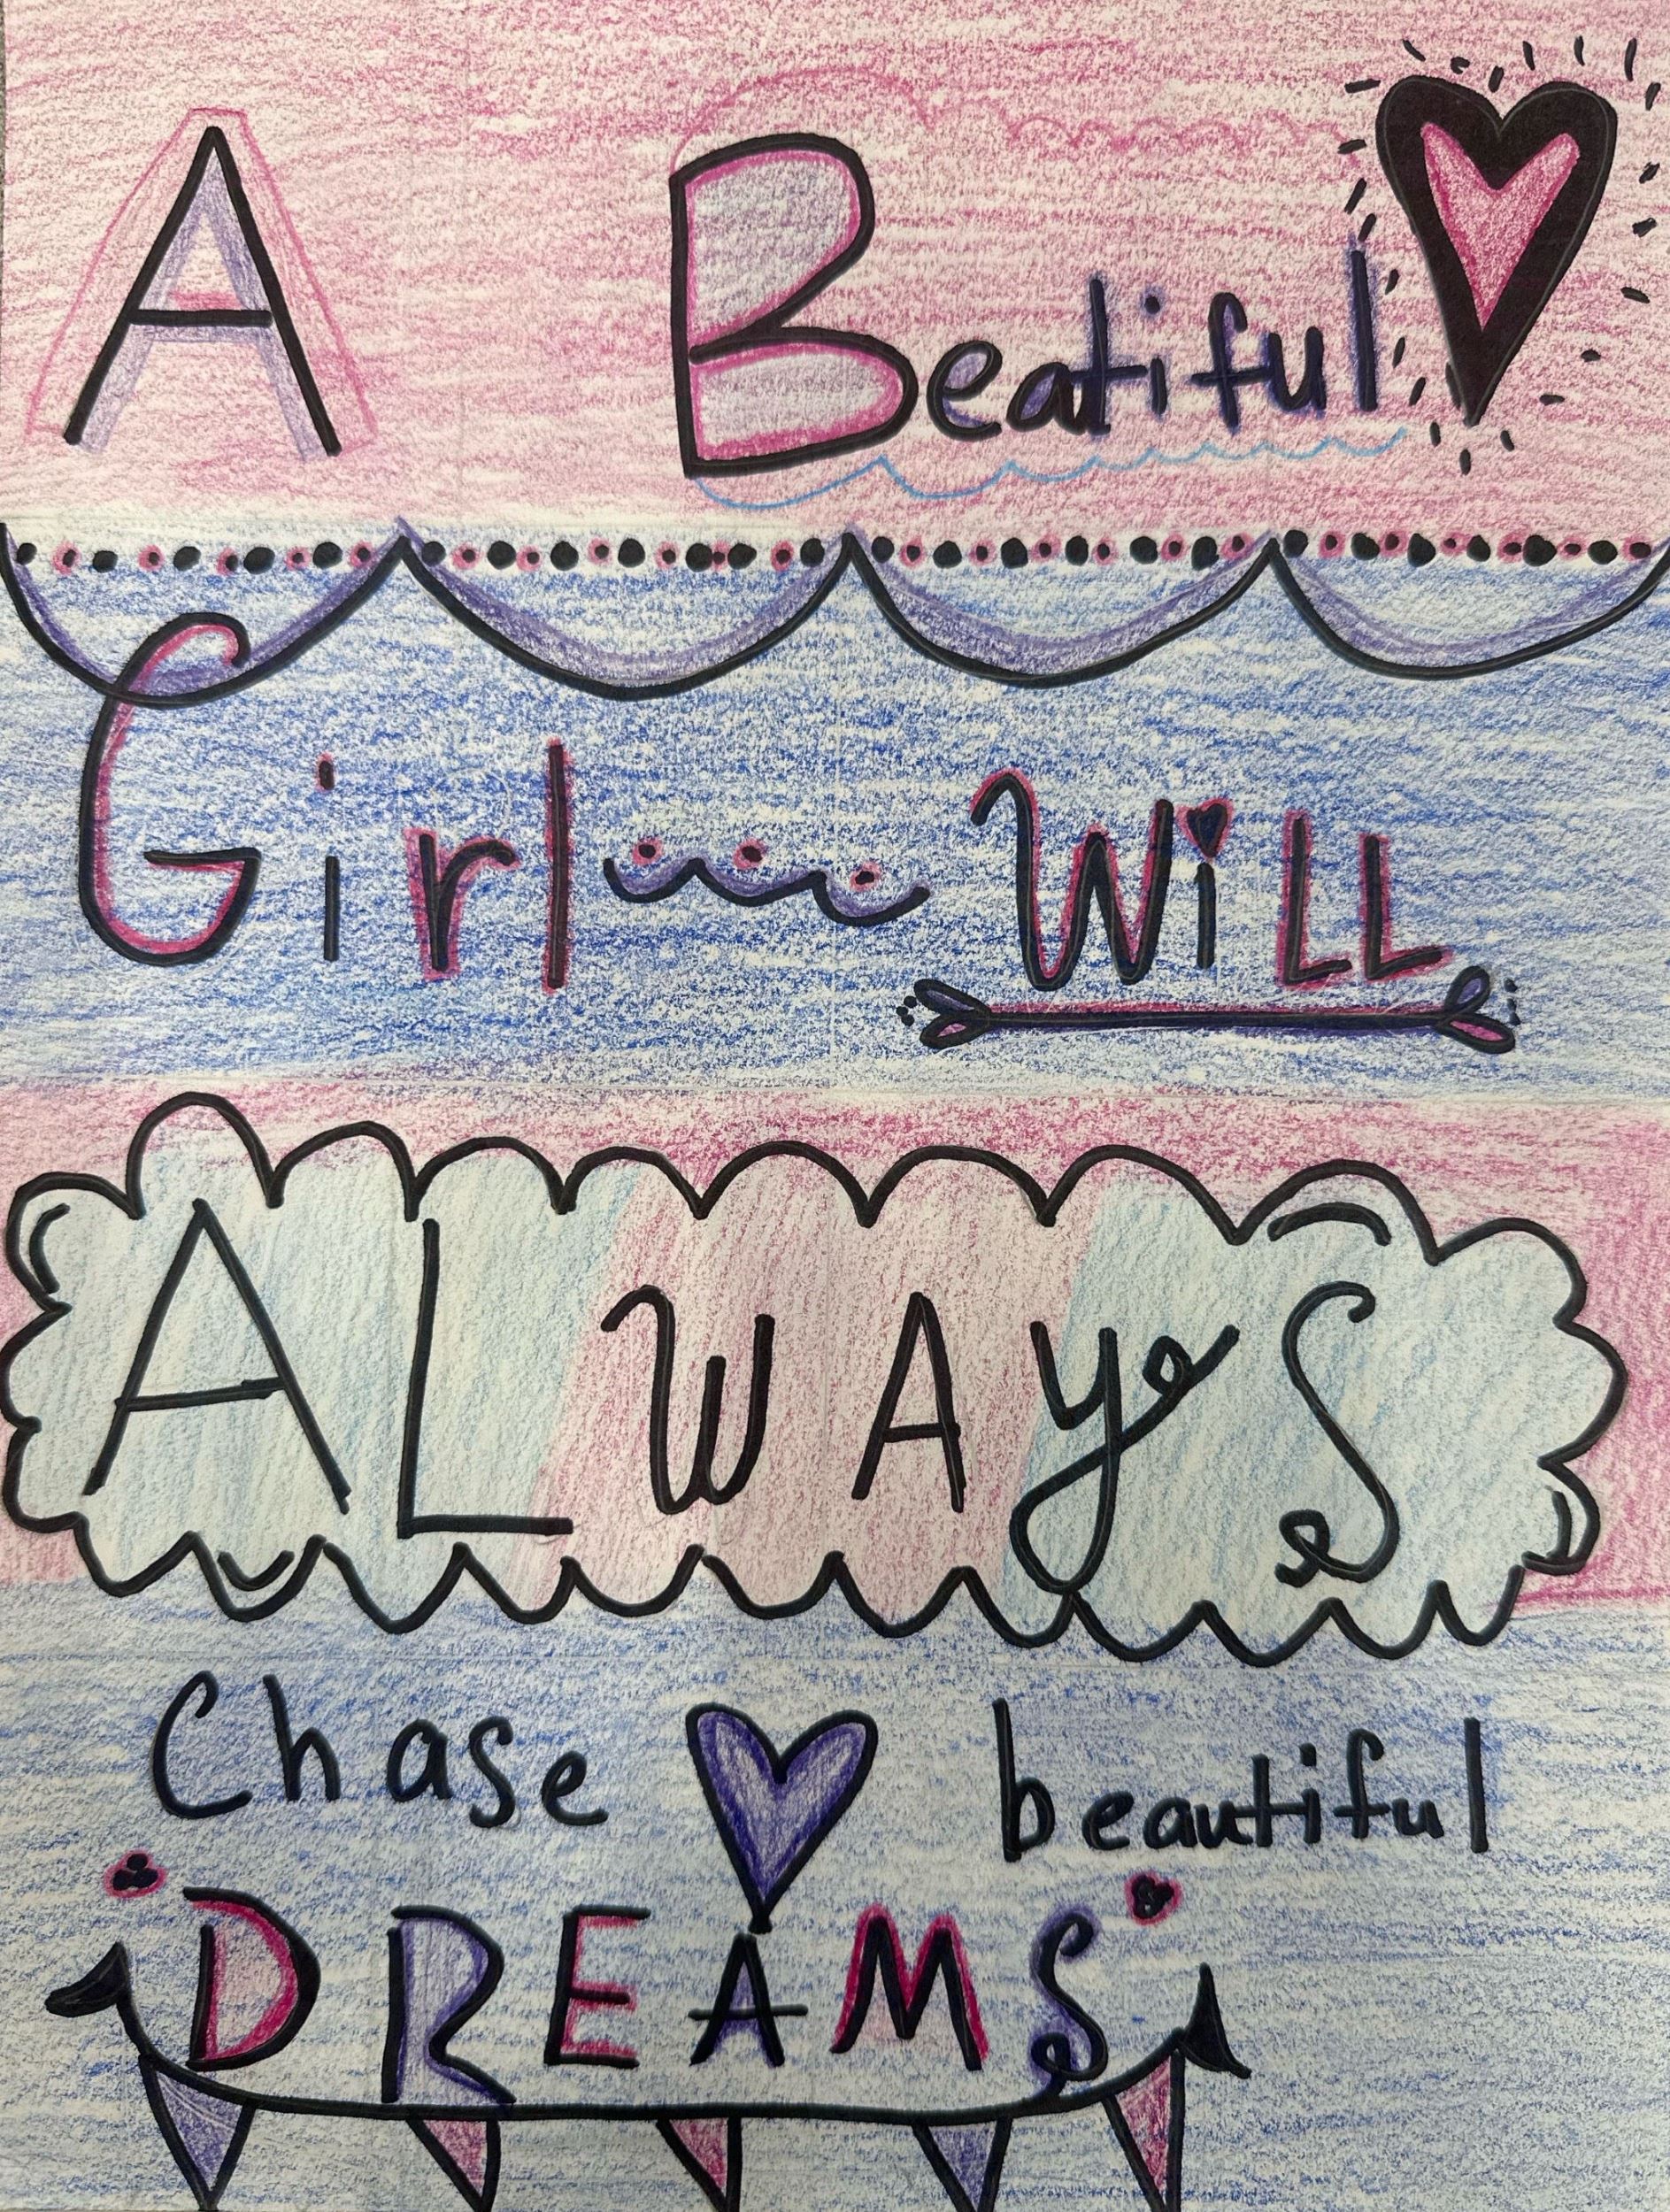 A Beatiful
Girl Will
ALWAYS
Chase beautiful
DREAMS